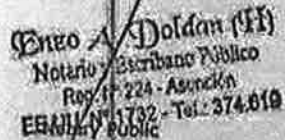 Enzo A. Doldán (H)
Notario y Escribano Público
Reg. Nº 224 - Asunción
Nº 1732 - Tel.: 374.619
Notary Public